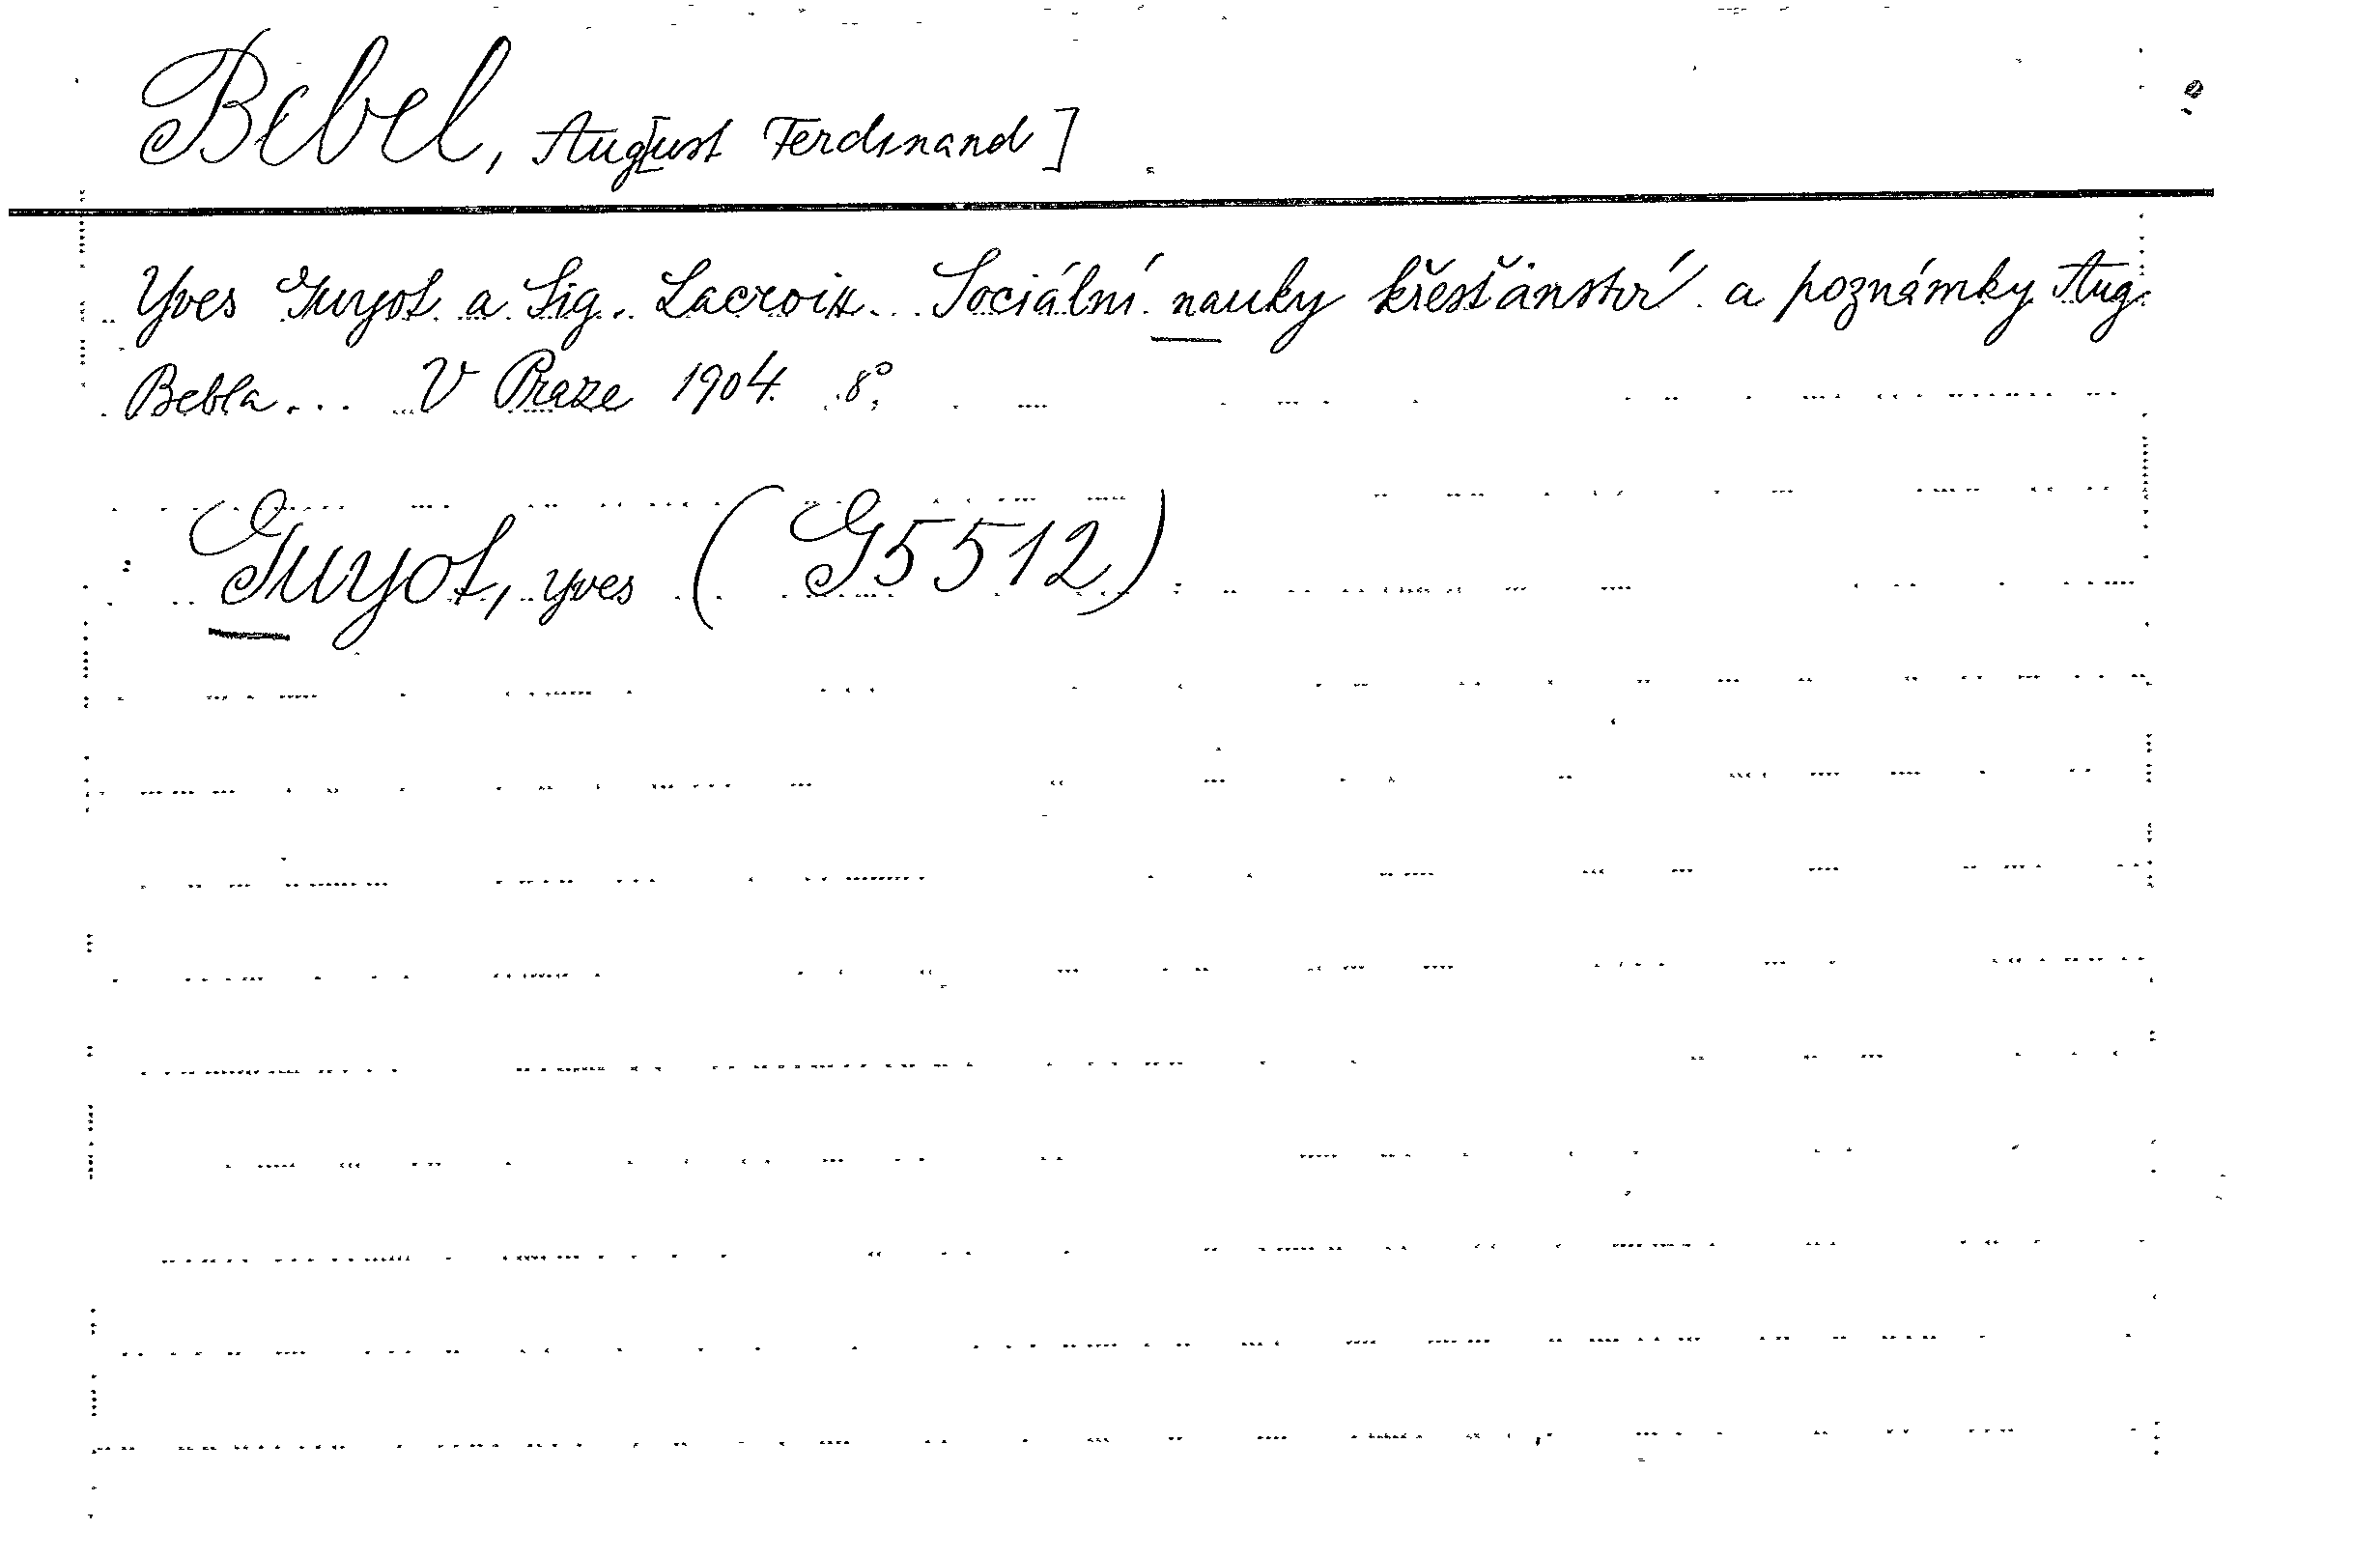 Bebel, Aug[ust Ferdinand]
Yves Guyot a Sig. Lacroix... Sociální nauky křesťanství a poznámky Aug.
Bebla... V Praze 1904. 8°.
Guyot, Yves (G5512)